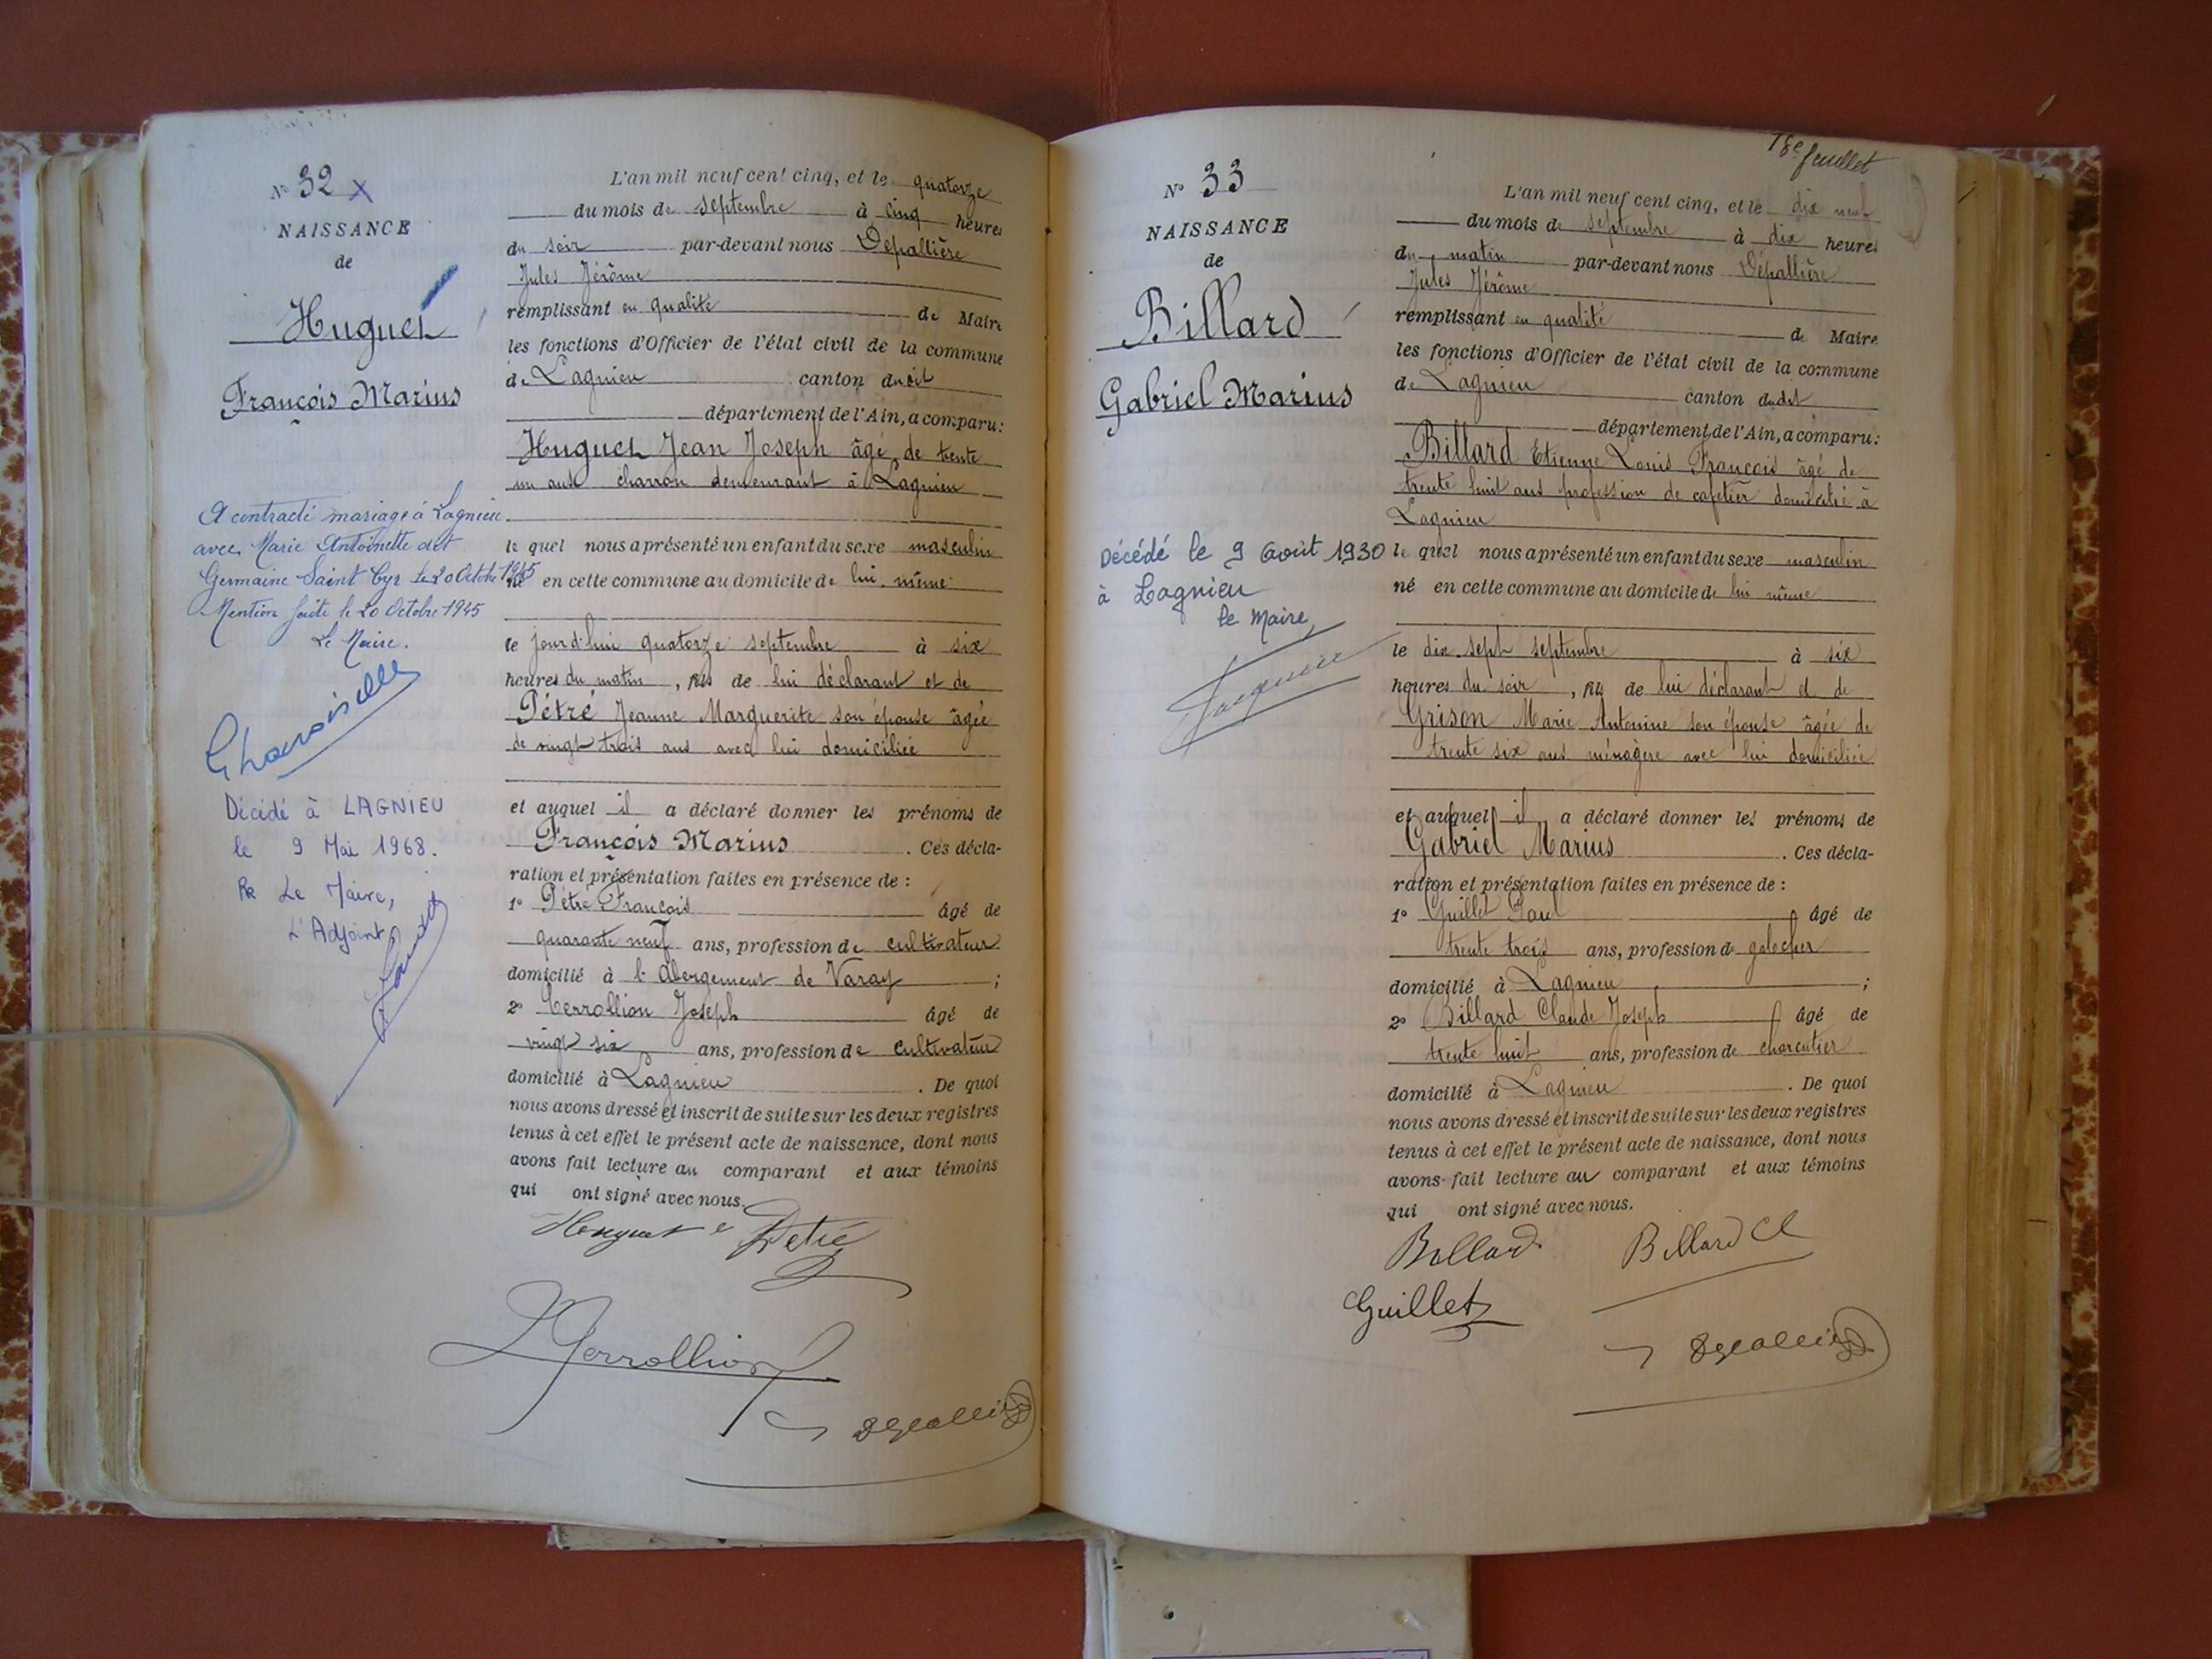 N° 32 X
NAISSANCE
de
Huguet
François Marius
A contracté mariage à Lagnieu
avec Marie Antoinette dit
Germaine Saint Cyr le 20 Octobre 1945
Mention faite le 20 Octobre 1945
Le Maire.
Décédé à LAGNIEU
le 9 Mai 1968.
Pr Le Maire,
L'Adjoint
L'an mil neuf cent cinq, et le quatorze
du mois de septembre à cinq heures
du soir par-devant nous Dépallière
Jules Jérôme
remplissant en qualité de Maire
les fonctions d'Officier de l'état civil de la commune
de Lagnieu canton dudit
département de l'Ain, a comparu:
Huguet Jean Joseph âgé de trente
un ans charron demeurant à Lagnieu
le quel nous a présenté un enfant du sexe masculin
né en cette commune au domicile de lui même
le jourd'hui quatorze septembre à six
heures du matin, fils de lui déclarant et de
Pétré Jeanne Marguerite son épouse âgée
de vingt trois ans avec lui domiciliée
et auquel il a déclaré donner les prénoms de
François Marius. Ces décla-
ration et présentation faites en présence de :
1° Pétré François âgé de
quarante neuf ans, profession de cultivateur
domicilié à l'Abergement de Varay ;
2° Cerrollion Joseph âgé de
vingt six ans, profession de cultivateur
domicilié à Lagnieu. De quoi
nous avons dressé et inscrit de suite sur les deux registres
tenus à cet effet le présent acte de naissance, dont nous
avons fait lecture au comparant et aux témoins
qui ont signé avec nous.
Huguet Petré
18e feuillet
N° 33
NAISSANCE
de
Billard
Gabriel Marius
Décédé le 9 Août 1930
à Lagnieu
le Maire
L'an mil neuf cent cinq, et le dix neuf
du mois de septembre à dix heures
du matin par-devant nous Dépallière
Jules Jérôme
remplissant en qualité de Maire
les fonctions d'Officier de l'état civil de la commune
de Lagnieu canton dudit
département de l'Ain, a comparu:
Billard Etienne Louis François âgé de
trente huit ans profession de cafetier domicilié à
Lagnieu
le quel nous a présenté un enfant du sexe masculin
né en cette commune au domicile de lui même
le dix sept septembre à six
heures du soir, fils de lui déclarant et de
Grison Marie Antonine son épouse âgée de
trente six ans ménagère avec lui domiciliée
et auquel il a déclaré donner les prénoms de
Gabriel Marius. Ces décla-
ration et présentation faites en présence de :
1° Guillet Paul âgé de
trente trois ans, profession de galocher
domicilié à Lagnieu ;
2° Billard Claude Joseph âgé de
trente huit ans, profession de charcutier
domicilié à Lagnieu. De quoi
nous avons dressé et inscrit de suite sur les deux registres
tenus à cet effet le présent acte de naissance, dont nous
avons fait lecture au comparant et aux témoins
qui ont signé avec nous.
Billard Billard Cl
Guillet